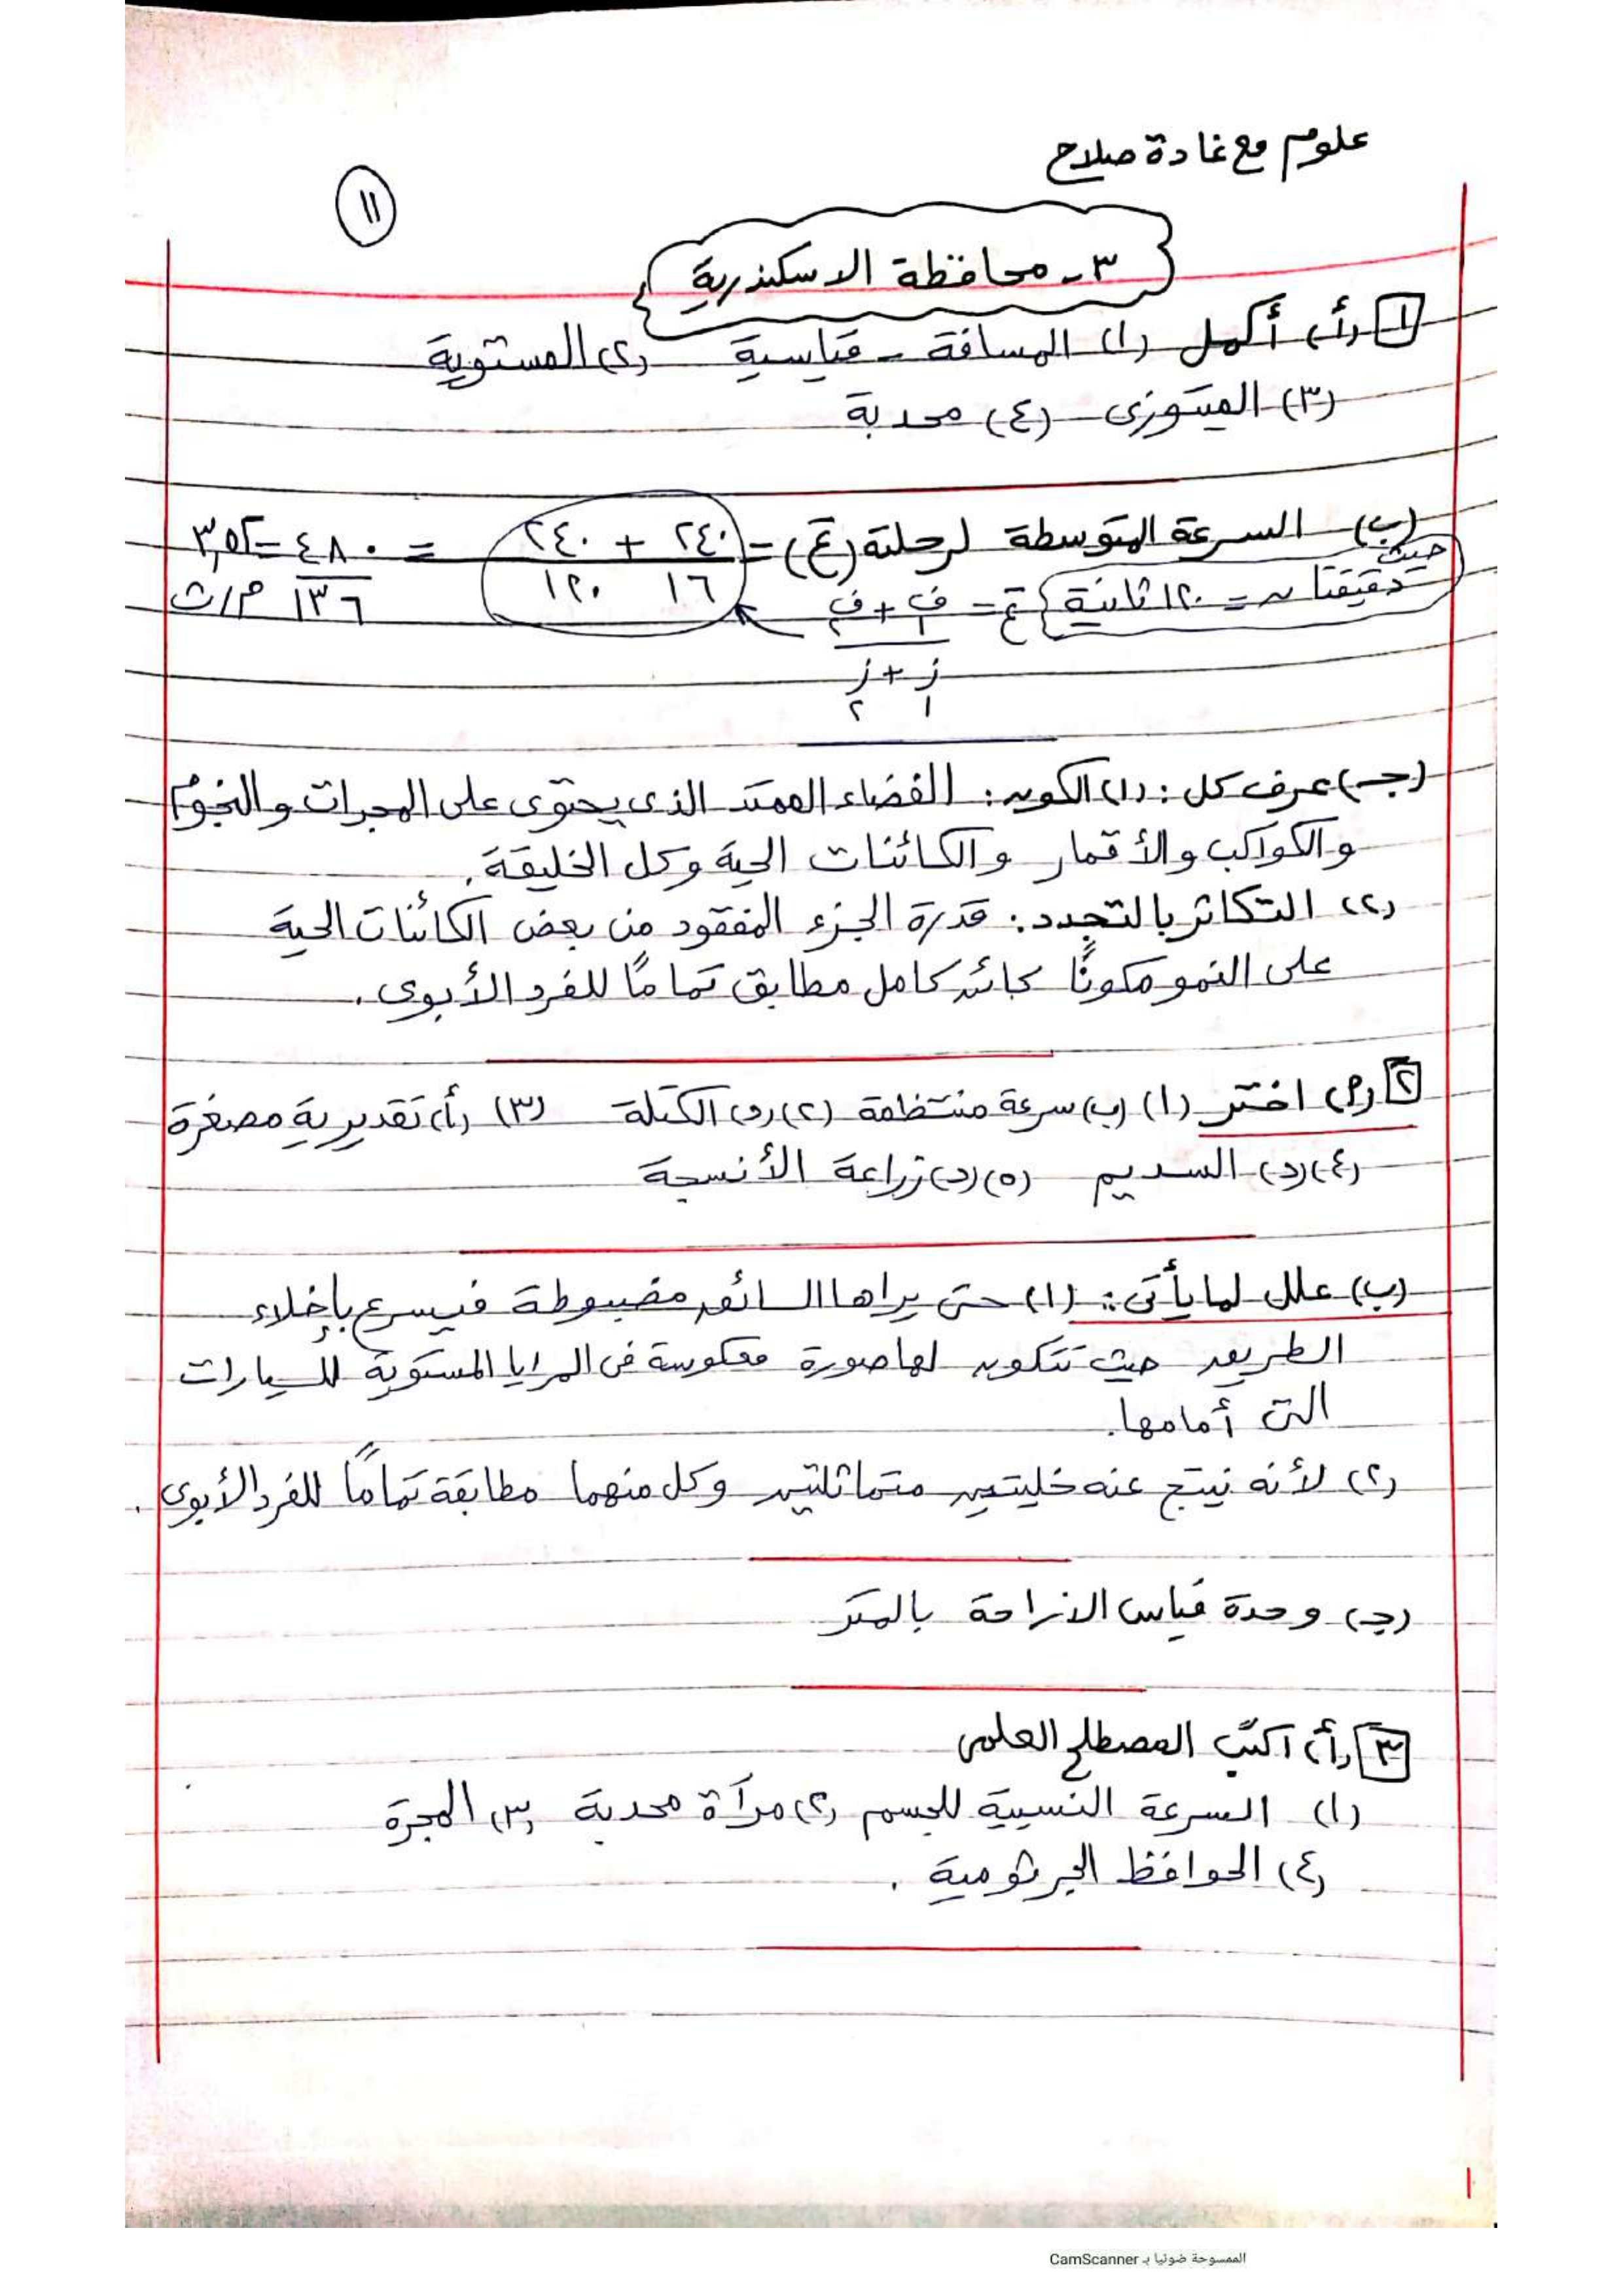 علوم مع غادة صلاح
١١
٣- محافظة الاسكندرية
١ (أ) أكمل (١) المسافة - قياسية (٢) المستوية
(٣) الميتوزى (٤) محدبة
(ب) السرعة المتوسطة لرحلته (ع) = ٢٤٠ + ٢٤٠ = ٤٨٠ = ٣,٥٢
١٦ ١٢٠ ١٣٦ م/ث
حيث دقيقتان = ١٢٠ ثانية ع = ف١ + ف٢
ز١ + ز٢
(جـ) عرف كل: (١) الكون: الفضاء الممتد الذى يحتوى على المجرات والنجوم
والكواكب والأقمار والكائنات الحية وكل الخليقة.
(٢) التكاثر بالتجدد: قدرة الجزء المفقود من بعض الكائنات الحية
على النمو مكونًا كائن كامل مطابق تمامًا للفرد الأبوى.
٢ (أ) اختر (١) (ب) سرعة منتظمة (٢) (د) الكتلة (٣) (أ) تقديرية مصغرة
(٤) (د) السديم (٥) (د) زراعة الأنسجة
(ب) علل لما يأتى: (١) حتى يراها السائق مضبوطة فيسرع بإخلاء
الطريق حيث تتكون لها صورة معكوسة فى المرايا المستوية للسيارات
التى أمامها.
(٢) لأنه ينتج عنه خليتين متماثلتين وكل منهما مطابقة تمامًا للفرد الأبوى.
(جـ) وحدة قياس الازاحة بالمتر
٣ (أ) اكتب المصطلح العلمى
(١) السرعة النسبية للجسم (٢) مرآة محدبة (٣) المجرة
(٤) الحوافظ الجرثومية.
الممسوحة ضوئيا بـ CamScanner